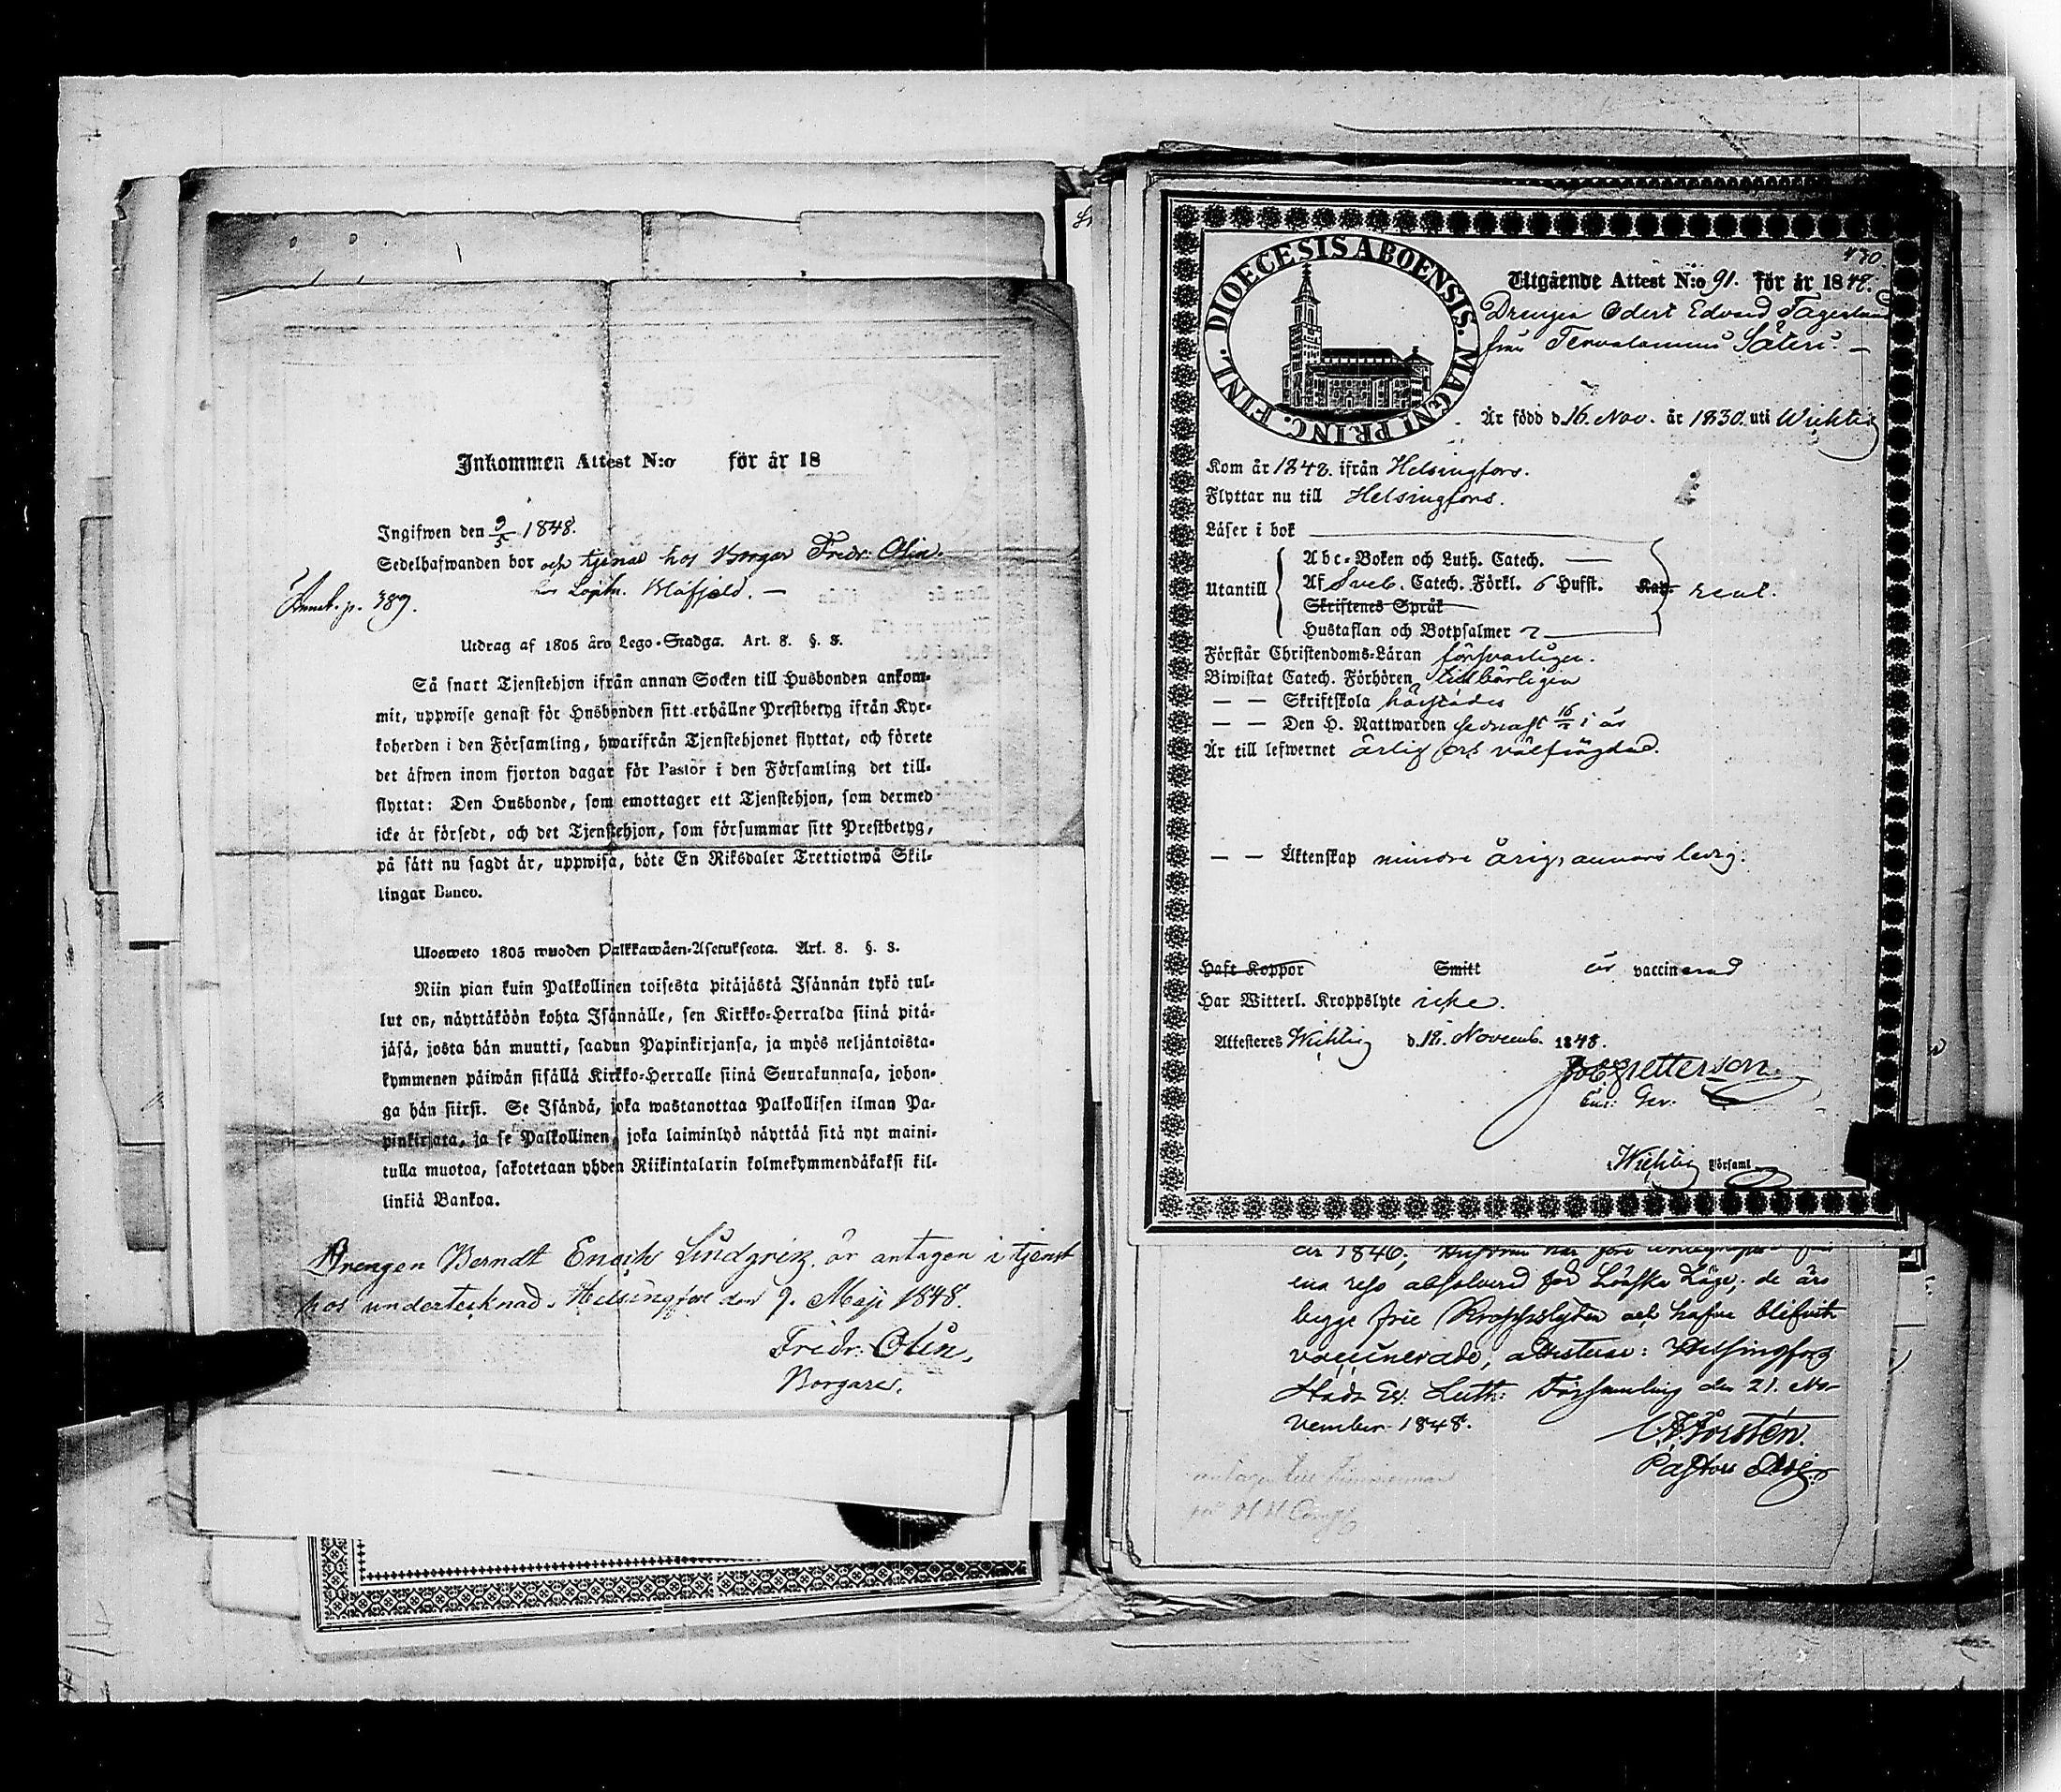 Inkommen Attest N:o för år 18
Ingifwen den 9/5 1848.
Sedelhafwanden bor och tjenar hos Borgar Fredr: Olin.
hos Blåfjeld. —
p. 389.
Utdrag af 1805 års Lego-Stadga. Art. 8. §. 3.
Så snart Tjenstehjon ifrån annan Socken till Husbonden ankom-
mit, uppwise genast för Husbonden sitt erhållne Prestbetyg ifrån Kyr-
koherden i den Församling, hwarifrån Tjenstehjonet flyttat, och förete
det åfwen inom fjorton dagar för Pastor i den Församling det till-
flyttat: Den Husbonde, som emottager ett Tjenstehjon, som dermed
icke år försedt, och det Tjenstehjon, som försummar sitt Prestbetyg,
på sått nu sagdt år, uppwisa, böte En Riksdaler Trettiotwå Skil-
lingar Banco.
Ulosweto 1805 wuoden Palkkawåen-Asetuksesta. Art. 8. §. 3.
Niin pian kuin Palkollinen toisesta pitåjåstå Isånnån tykö tul-
lut on, nåyttåköön kohta Isånnålle, sen Kirkko-Herralda siinå pitå-
jåså, josta hån muutti, saadun Papinkirjansa, ja myös neljåntoista-
kymmenen påiwån sisållå Kirkko-Herralle siinå Seurakunnasa, johon-
ga hån siirsi. Se Isåndå, joka wastanottaa Palkollisen ilman Pa-
pinkirjata, ja se Palkollinen, joka laiminlyö nåyttåå sitå nyt maini-
tulla muotoa, sakotetaan yhden Riikintalarin kolmekymmendåkaksi kil-
linkiå Bankoa.
Drengen Berndt Enoch Lindqvist är antagen i tjenst
hos undertecknad. Helsingfors den 9. Maji 1848.
Fridr: Olin,
Borgare.
470.
DIOECESIS ABOENSIS. MAGNI PRINC. FINL.
Utgående Attest N:o 91. för år 1848.
Drengen Edvard
från Säteri. —
År född d. 16. Nov. år 1830. uti Wichtis
Kom år 1848. ifrån Helsingfors.
Flyttar nu till Helsingfors.
Låser i bok
Utantill
Abc-Boken och Luth. Catech. —
Af Sveb. Catech. Förkl. 6 Hufst. Kap. rent.
Skriftenes Språk
Hustaflan och Botpsalmer
Förstår Christendoms-Låran försvarligen.
Biwistat Catech. Förhören tillbörligen
— — Skriftskola härstädes
— — Den H. Nattwarden sednast i år
År till lefwernet ärlig och välfrägdad.
— — Åktenskap minderårig, annars ledig.
Haft Koppor Smitt är vaccinerad
Har Witterl. Kroppslyte icke.
Attesteres Wichtis d. 12. Novemb. 1848.
Wichtis Församl.
år 1846;
ena resp absolverad för Lönska Läge; de äro
begge frie Kroppslyten och hafva blifvit
vaccinerade, attesterar: Helsingfors
Stads Ev. Luth: Församling den 21. No-
vember 1848.
Forstén.
Pastors Adj: